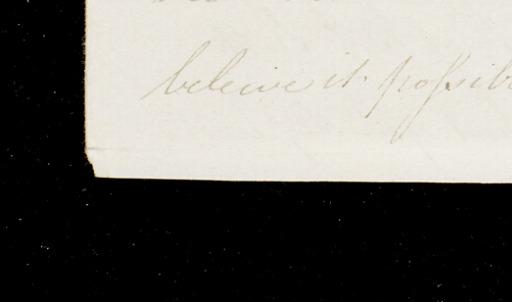 beleive it possib